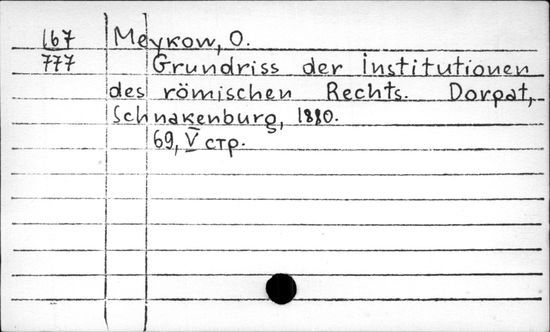 167 Meykow, O.
777 Grundriss der Institutionen
des römischen Rechts. Dorpat,
Schnakenburg, 1880.
69, V стр.